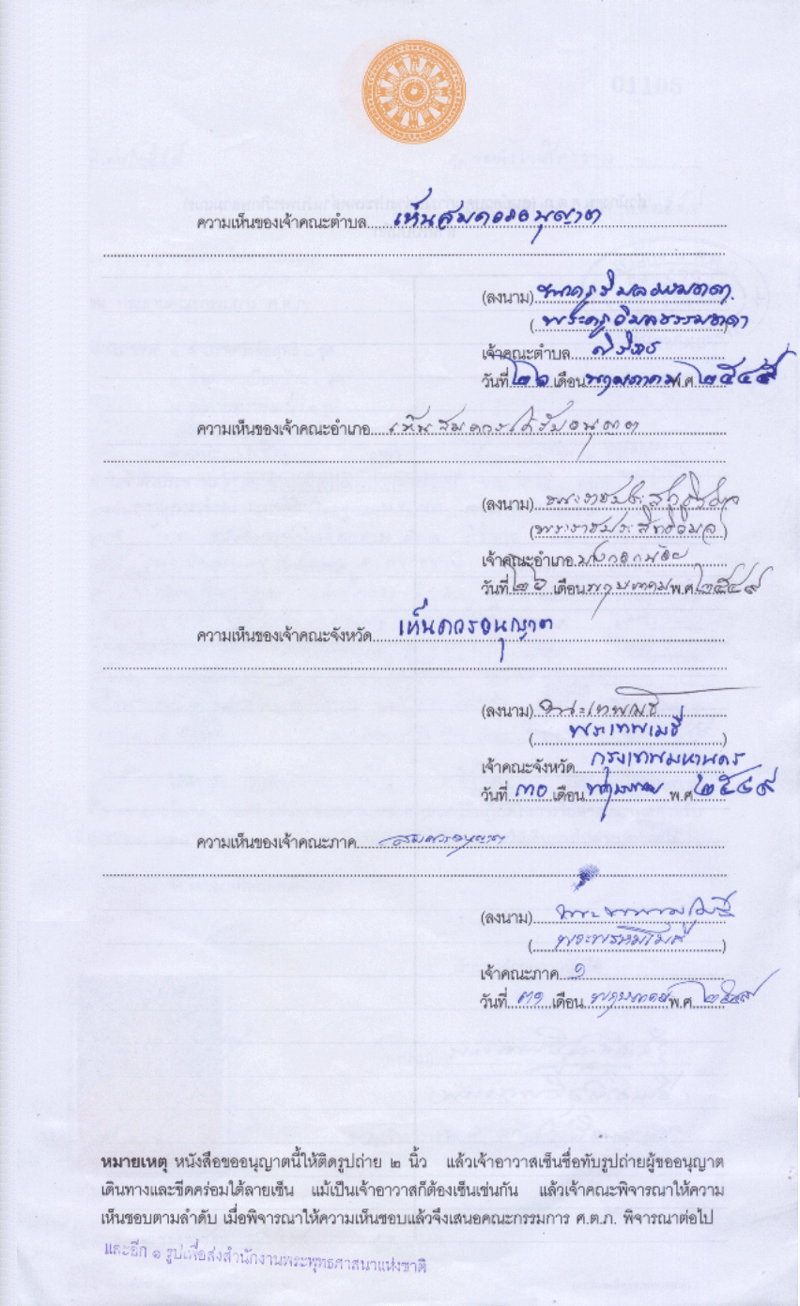 ความเห็นของเจ้าคณะตำบล เห็นสมควรอนุญาต
(ลงนาม)
(พระครูวิมลธรรมธาดา)
เจ้าคณะตำบล ศิริราช
วันที่ ๒๖ เดือน พฤษภาคม พ.ศ. ๒๕๔๙
ความเห็นของเจ้าคณะอำเภอ เห็นสมควรได้รับอนุญาต
(ลงนาม) พระราชประสิทธิวิมล
(พระราชประสิทธิวิมล)
เจ้าคณะอำเภอ บางกอกน้อย
วันที่ ๒๖ เดือน พฤษภาคม พ.ศ. ๒๕๔๙
ความเห็นของเจ้าคณะจังหวัด เห็นควรอนุญาต
(ลงนาม) พระเทพเมธี
(พระเทพเมธี)
เจ้าคณะจังหวัด กรุงเทพมหานคร
วันที่ ๓๐ เดือน พฤษภาคม พ.ศ. ๒๕๔๙
ความเห็นของเจ้าคณะภาค สมควรอนุญาต
(ลงนาม)
(พระพรหมโมลี)
เจ้าคณะภาค ๑
วันที่ ๓๑ เดือน พฤษภาคม พ.ศ. ๒๕๔๙
หมายเหตุ หนังสือขออนุญาตนี้ให้ติดรูปถ่าย ๒ นิ้ว แล้วเจ้าอาวาสเซ็นชื่อทับรูปถ่ายผู้ขออนุญาต
เดินทางและขีดคร่อมใต้ลายเซ็น แม้เป็นเจ้าอาวาสก็ต้องเซ็นเช่นกัน แล้วเจ้าคณะพิจารณาให้ความ
เห็นชอบตามลำดับ เมื่อพิจารณาให้ความเห็นชอบแล้วจึงเสนอคณะกรรมการ ศ.ต.ภ. พิจารณาต่อไป
และอีก ๑ รูปเพื่อส่งสำนักงานพระพุทธศาสนาแห่งชาติ